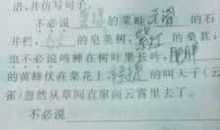 语,并仿写句子。
不必说碧绿的菜畦,光滑的石
井栏,的皂荚树,紫红的桑葚;
也不必说鸣蝉在树叶里长吟,肥胖
的黄蜂伏在菜花上,的叫天子(云
雀)忽然从草间直窜向云霄里去了。
不必说